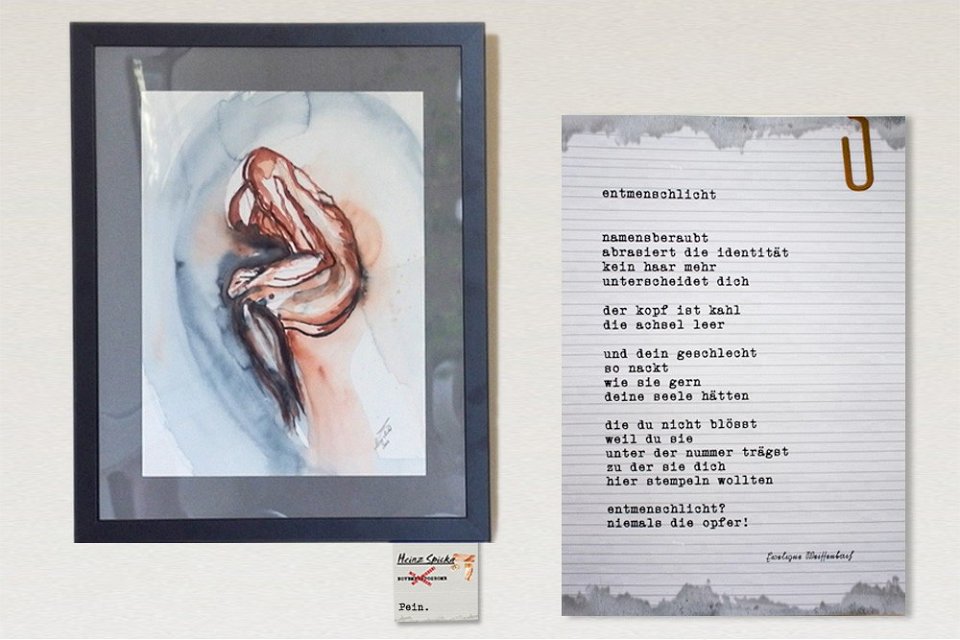 entmenschlicht
namensberaubt
abrasiert die identität
kein haar mehr
unterscheidet dich
der kopf ist kahl
die achsel leer
und dein geschlecht
so nackt
wie sie gern
deine seele hätten
die du nicht blösst
weil du sie
unter der nummer trägst
zu der sie dich
hier stempeln wollten
entmenschlicht?
niemals die opfer!
Heinz Spicka
Pein.